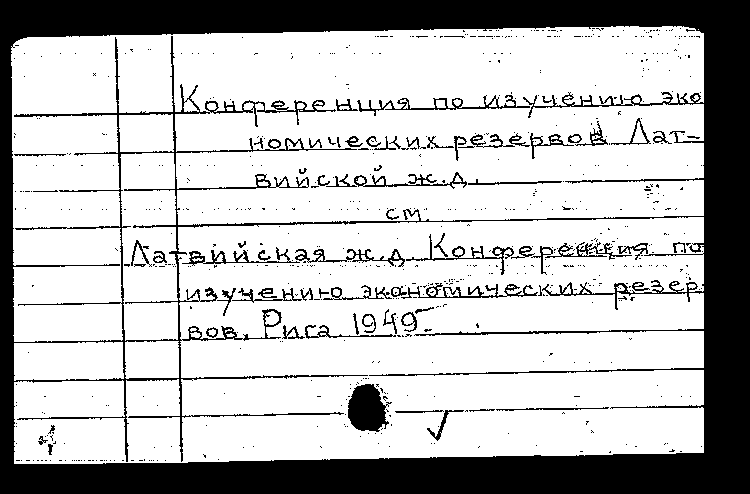 Конференция по изучению эко
номических резервов Лат-
вийской ж.д.
см.
Латвийская ж.д. Конференция по
изучению экономических резер-
вов. Рига. 1949.